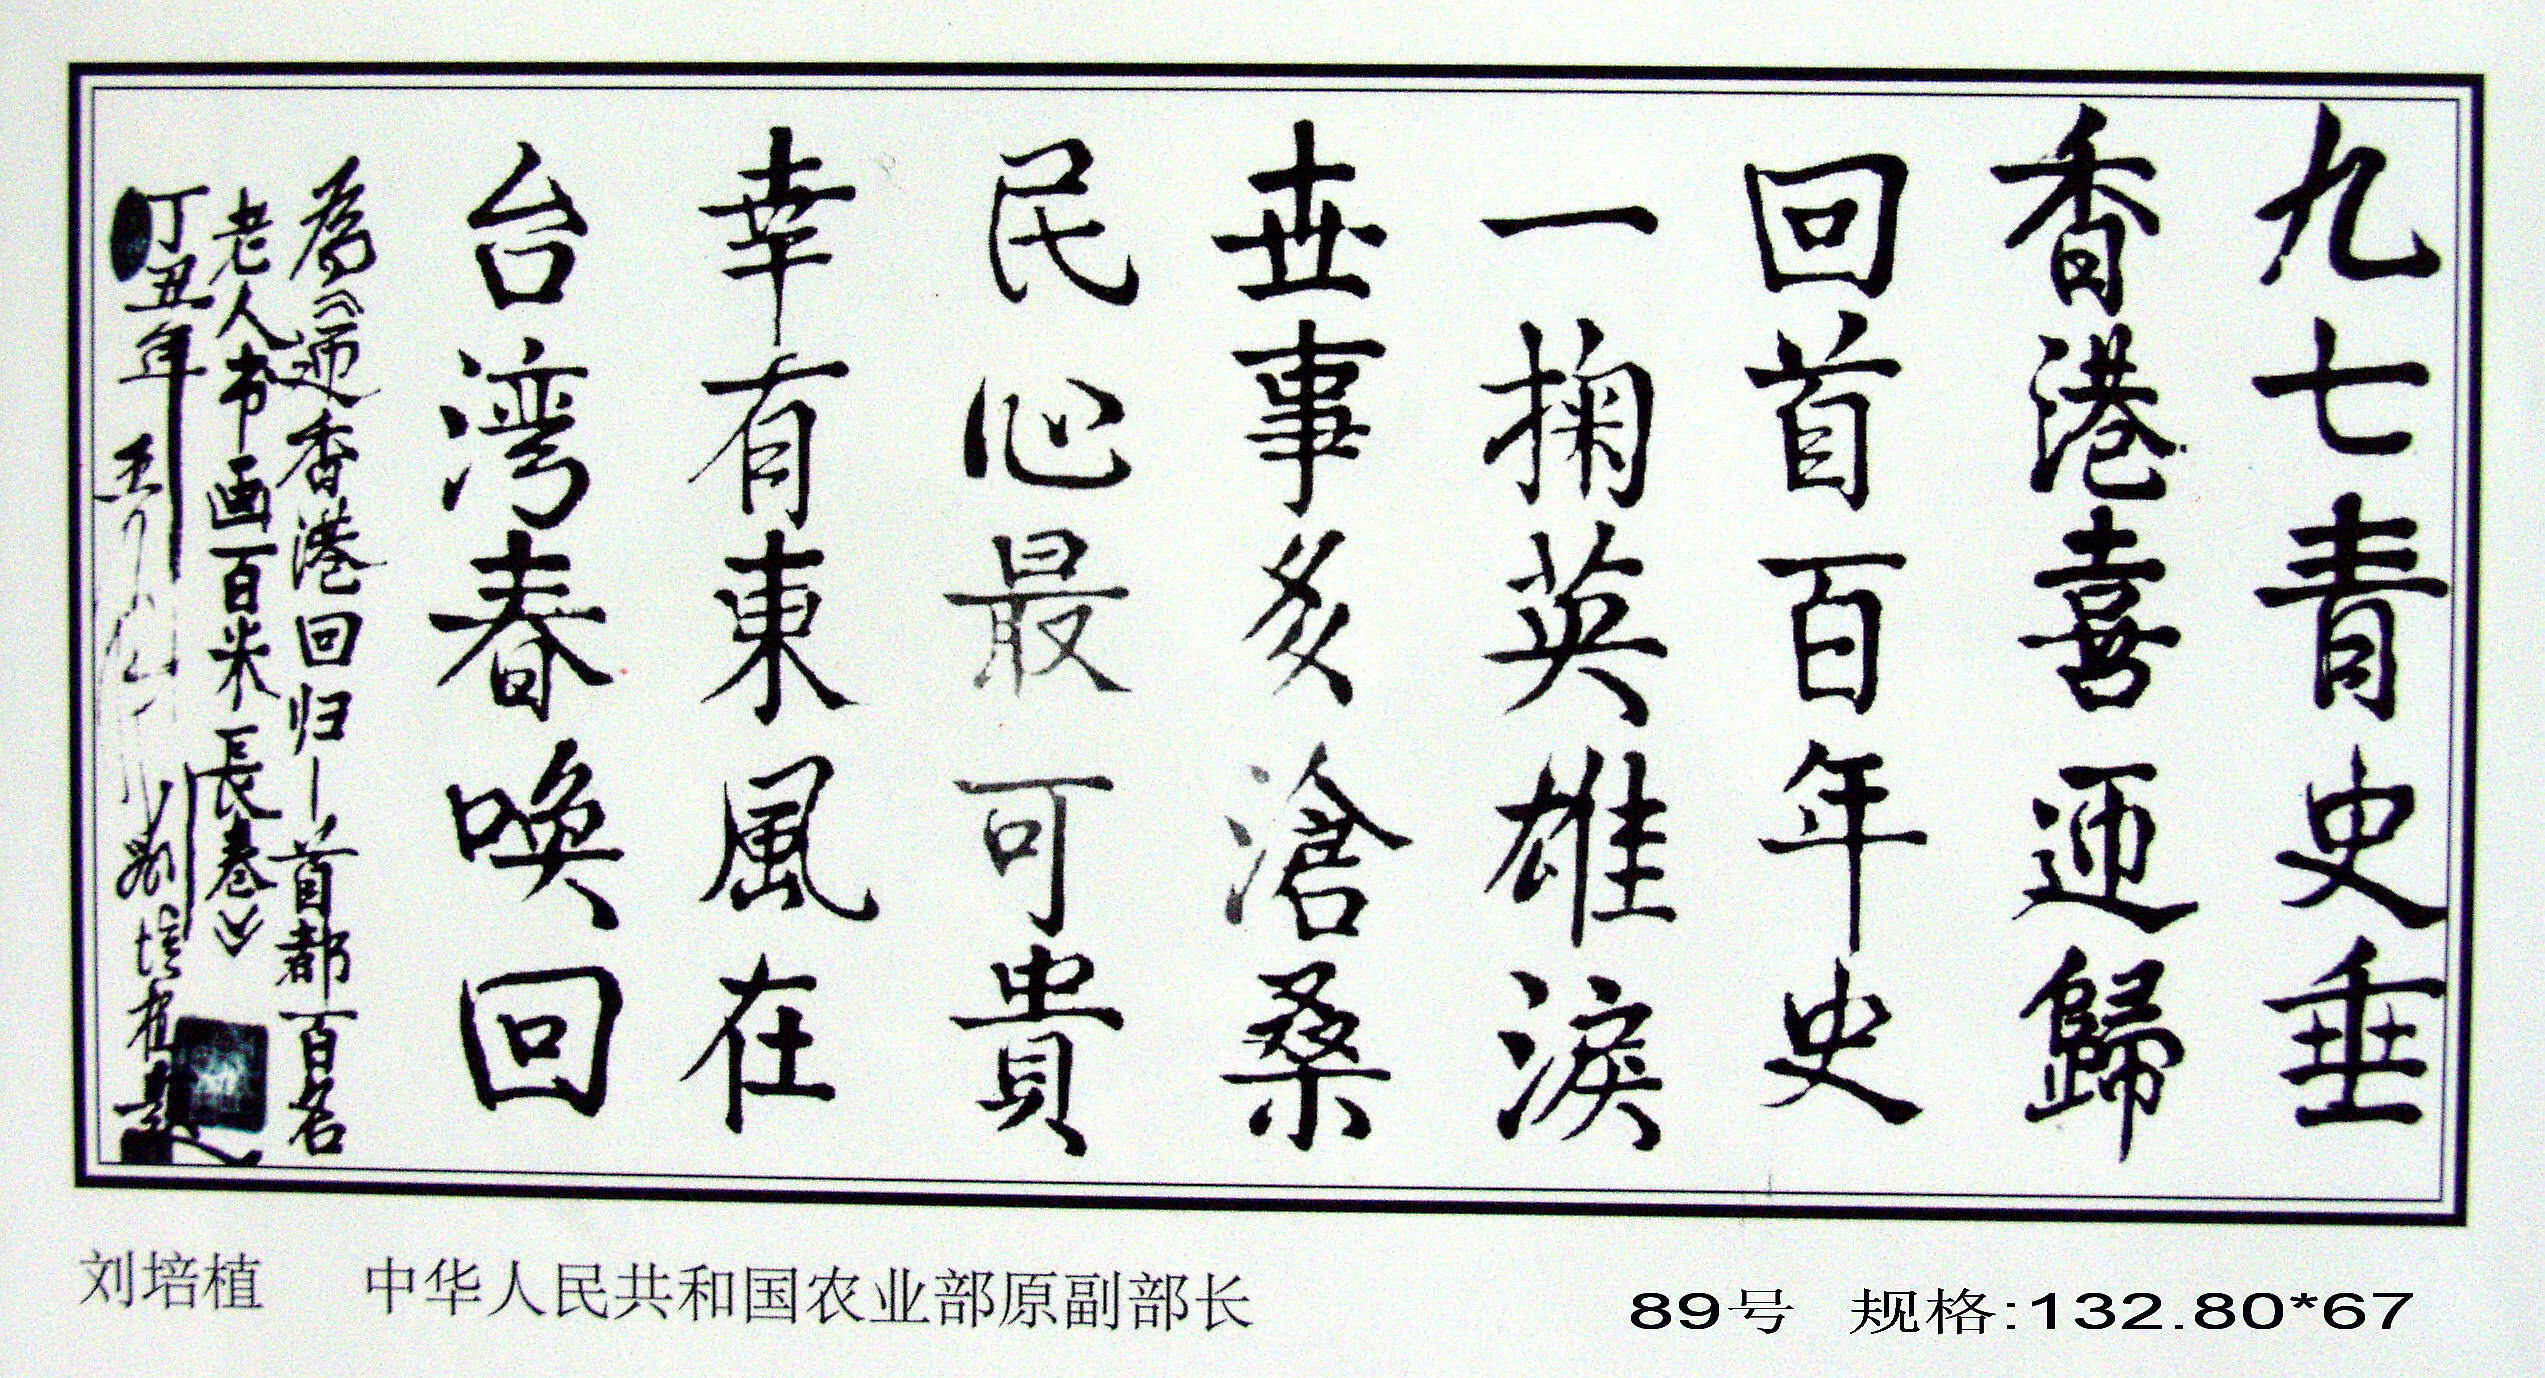 九七青史垂
香港喜迎歸
回首百年史
一掬英雄淚
世事多滄桑
民心最可貴
幸有東風在
台湾春喚回
為《迎香港回归—首都百名
老人书画百米長卷》
丁丑年
劉培植題
刘培植 中华人民共和国农业部原副部长
89号 规格:132.80*67